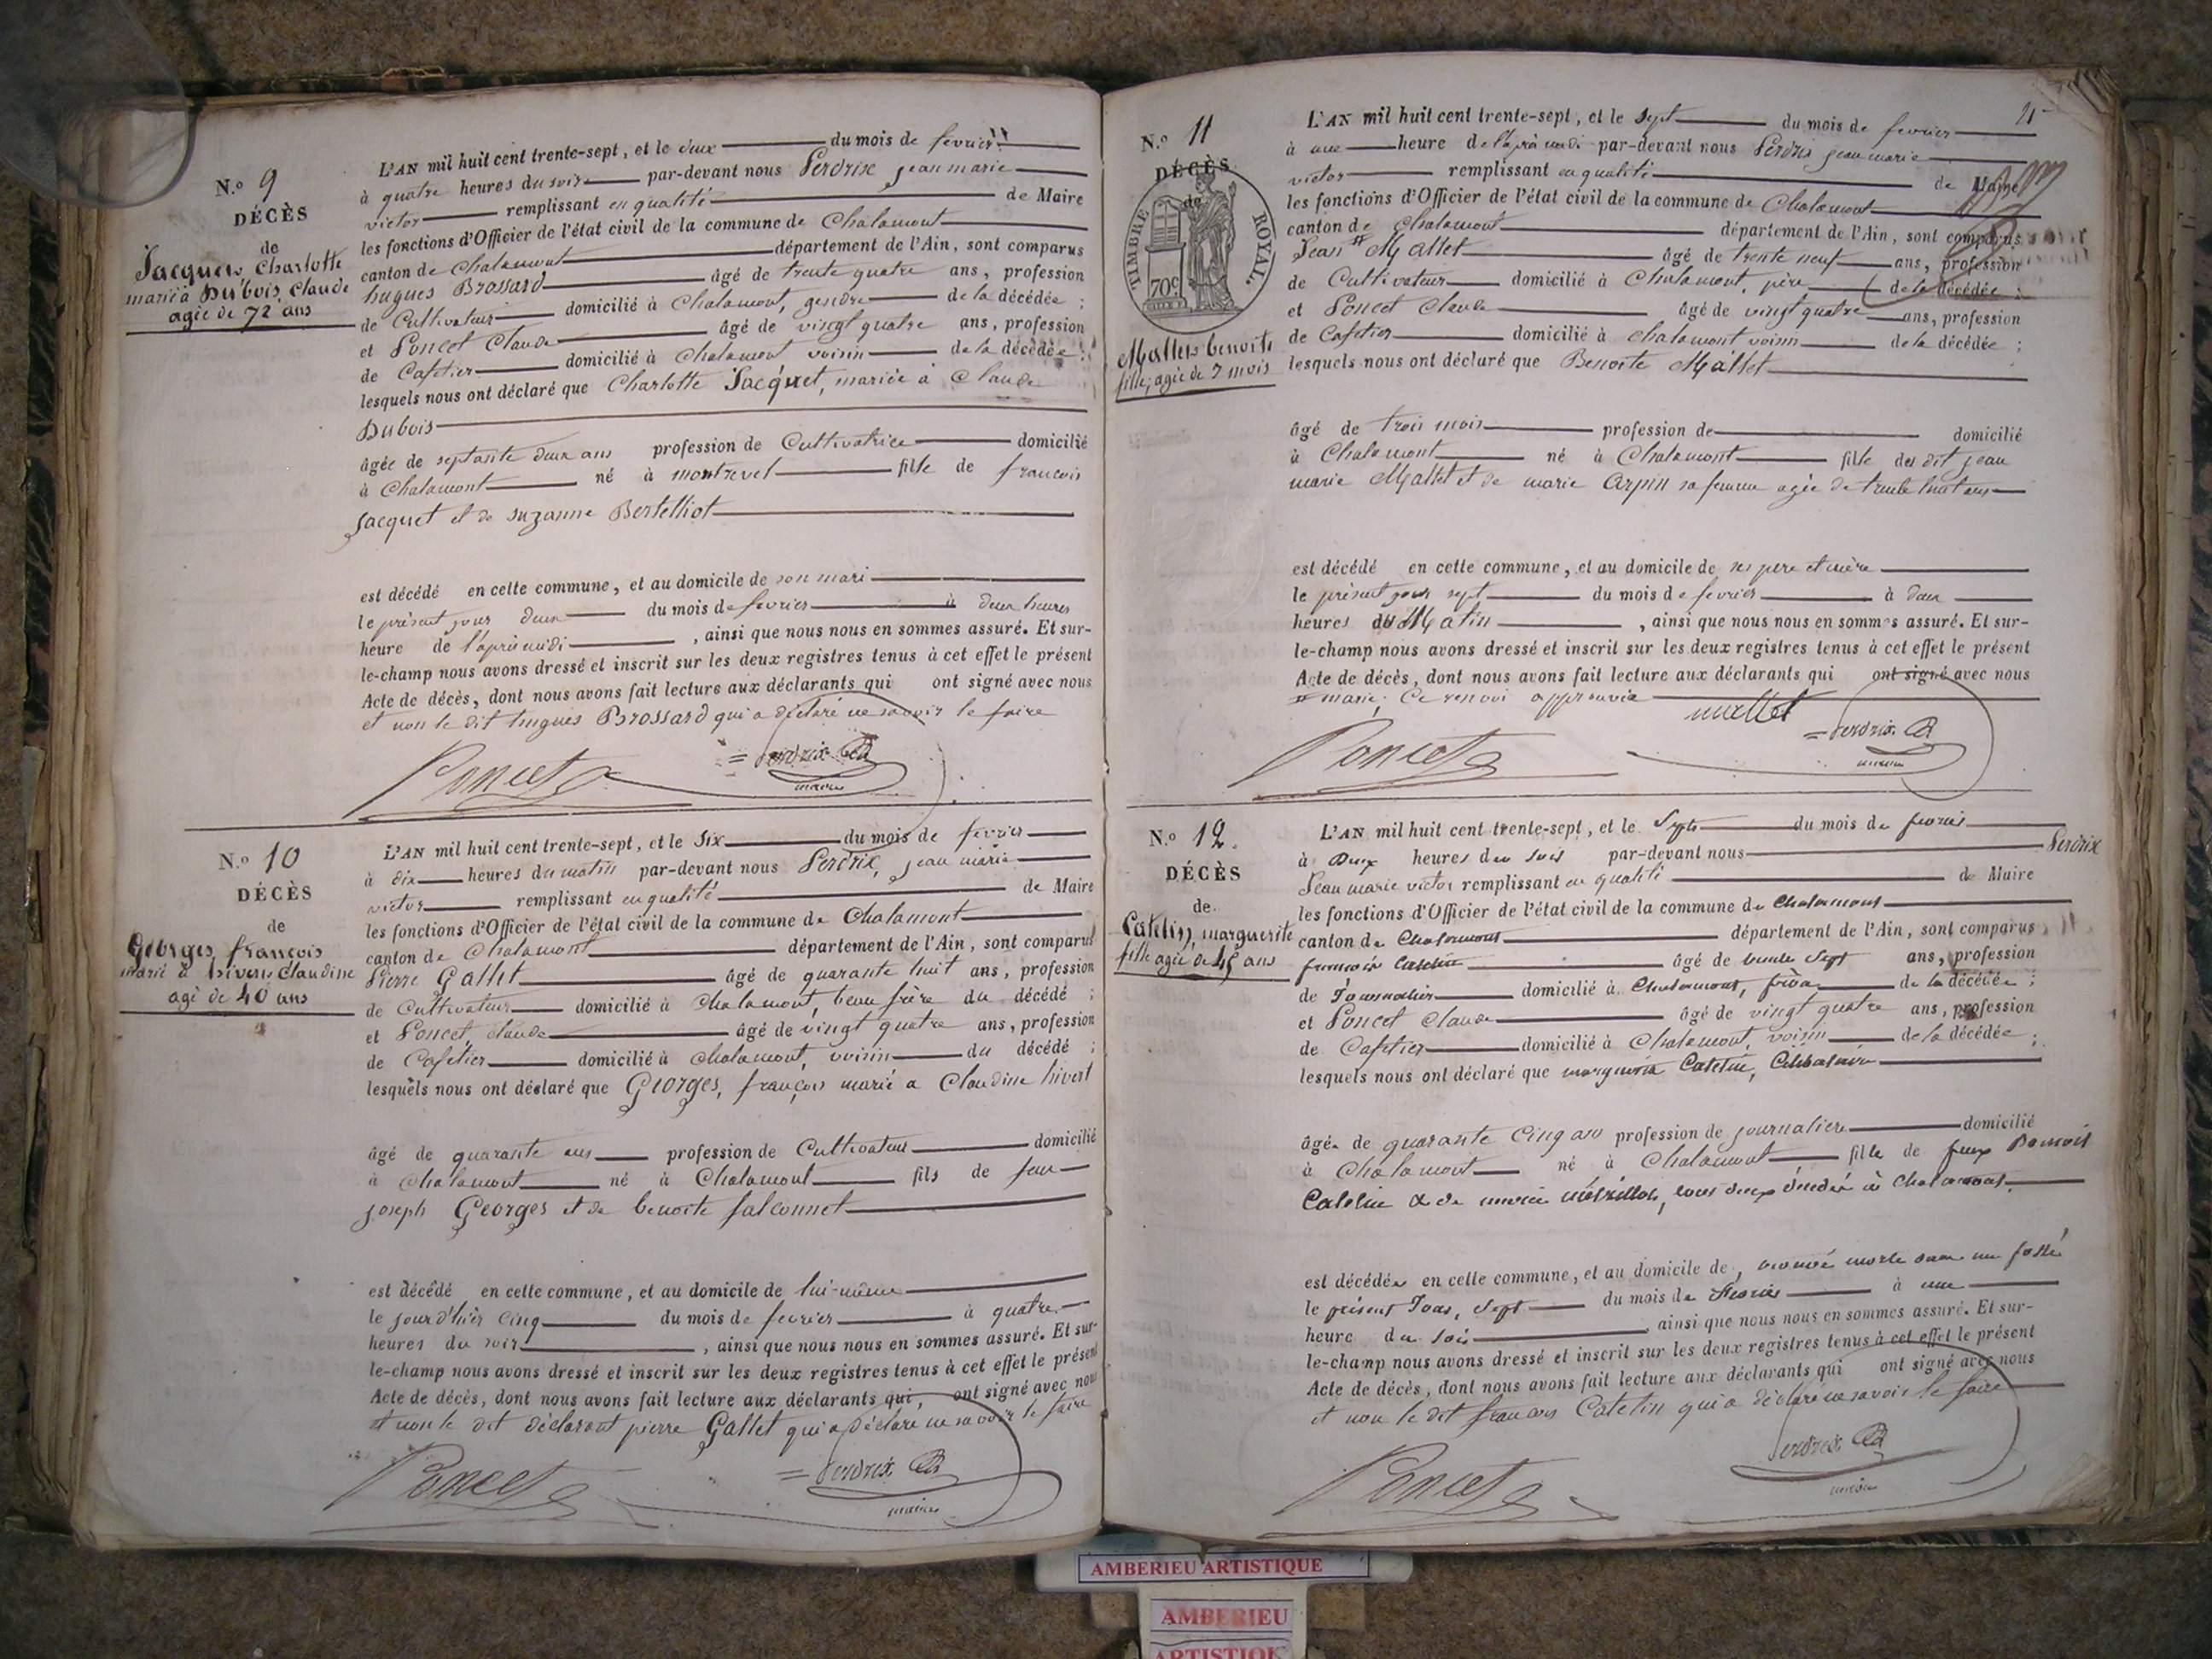 N.° 9
DÉCÈS
de
Jacquet, Charlotte
mariée à Dubois, Claude
agée de 72 ans
L'AN mil huit cent trente-sept, et le deux du mois de fevrier
à quatre heures du soir par-devant nous Perdrix jean marie
victor remplissant en qualité de Maire
les fonctions d'Officier de l'état civil de la commune de Chalamont
canton de Chalamont département de l'Ain, sont comparus
hugues Brossard âgé de trente quatre ans, profession
de Cultivateur domicilié à Chalamont, gendre de la décédée ;
et Poncet Claude âgé de vingt quatre ans, profession
de Cafetier domicilié à Chalamont voisin de la décédée ;
lesquels nous ont déclaré que Charlotte Jacquet, mariée à Claude
Dubois
âgée de septante deux ans profession de Cultivatrice domicilié
à Chalamont né à montrevel fille de francois
jacquet et de suzanne Bertelliot
est décédé en cette commune, et au domicile de son mari
le présent jour deux du mois de fevrier à deux heures
heure de l'après midi, ainsi que nous nous en sommes assuré. Et sur-
le-champ nous avons dressé et inscrit sur les deux registres tenus à cet effet le présent
Acte de décès, dont nous avons fait lecture aux déclarants qui ont signé avec nous
et non le dit hugues Brossard qui a déclaré ne savoir le faire
Poncet = Perdrix
maire
N.° 10
DÉCÈS
de
Georges, francois
marié à hivert Claudine
agé de 40 ans
L'AN mil huit cent trente-sept, et le Six du mois de fevrier
à dix heures du matin par-devant nous Perdrix, jean marie
victor remplissant en qualité de Maire
les fonctions d'Officier de l'état civil de la commune de Chalamont
canton de Chalamont département de l'Ain, sont comparus
Pierre Gallet âgé de quarante huit ans, profession
de Cultivateur domicilié à Chalamont, beau frère du décédé ;
et Poncet, claude âgé de vingt quatre ans, profession
de Cafetier domicilié à Chalamont, voisin du décédé ;
lesquels nous ont déclaré que Georges, françois marié a Claudine hivert
âgé de quarante ans profession de Cultivateur domicilié
à Chalamont né à Chalamont fils de feu
joseph Georges et de benoite falconnet
est décédé en cette commune, et au domicile de lui-même
le jour d'hier cinq du mois de fevrier à quatre
heures du soir, ainsi que nous nous en sommes assuré. Et sur-
le-champ nous avons dressé et inscrit sur les deux registres tenus à cet effet le présent
Acte de décès, dont nous avons fait lecture aux déclarants qui, ont signé avec nous
et non le dit déclarant pierre Gallet qui a déclaré ne savoir le faire
Poncet = Perdrix
maire
N.° 11
DÉCÈS
de
TIMBRE ROYAL.
70c
Mallet benoite
fille, agée de 7 mois
L'AN mil huit cent trente-sept, et le sept du mois de fevrier
à une heure de l'après midi par-devant nous Perdrix jean marie
victor remplissant en qualité de Maire
les fonctions d'Officier de l'état civil de la commune de Chalamont
canton de Chalamont département de l'Ain, sont comparus
Jean # Mallet âgé de trente neuf ans, profession
de Cultivateur domicilié à Chalamont, père de la décédée ;
et Poncet Claude âgé de vingt quatre ans, profession
de Cafetier domicilié à Chalamont voisin de la décédée ;
lesquels nous ont déclaré que Benoite Mallet
âgé de trois mois profession de domicilié
à Chalamont né à Chalamont fille du dit jean
marie Mallet et de marie Carpin sa femme agée de trente huit ans
est décédé en cette commune, et au domicile de ses pere et mère
le présent jour sept du mois de fevrier à deux
heures du Matin, ainsi que nous nous en sommes assuré. Et sur-
le-champ nous avons dressé et inscrit sur les deux registres tenus à cet effet le présent
Acte de décès, dont nous avons fait lecture aux déclarants qui ont signé avec nous
# marie; Ce renvoi approuvé
mallet
Poncet = Perdrix
maire
N.° 12.
DÉCÈS
de
Catelin, marguerite
fille agée de 45 ans
L'AN mil huit cent trente-sept, et le Sept du mois de fevrier
à Deux heures du soir par-devant nous Perdrix
Jean marie victor remplissant en qualité de Maire
les fonctions d'Officier de l'état civil de la commune de Chalamont
canton de Chalamont département de l'Ain, sont comparus
francois Catelin âgé de trente sept ans, profession
de Journalier domicilié à Chalamont, frère de la décédée ;
et Poncet Claude âgé de vingt quatre ans, profession
de Cafetier domicilié à Chalamont, voisin de la décédée ;
lesquels nous ont déclaré que marguerite Catelin, Célibataire
âgée de quarante cinq ans profession de journaliere domicilié
à Chalamont né à Chalamont fille de feux Benoit
Catelin & de marie tous deux décédés à Chalamont
est décédée en cette commune, et au domicile de, trouvé morte dans un fossé
le présent Jour, Sept du mois de Fevrier à une
heure du soir, ainsi que nous nous en sommes assuré. Et sur-
le-champ nous avons dressé et inscrit sur les deux registres tenus à cet effet le présent
Acte de décès, dont nous avons fait lecture aux déclarants qui ont signé avec nous
et non le dit francois Catelin qui a déclaré ne savoir le faire
Poncet Perdrix
maire
AMBERIEU ARTISTIQUE
AMBERIEU